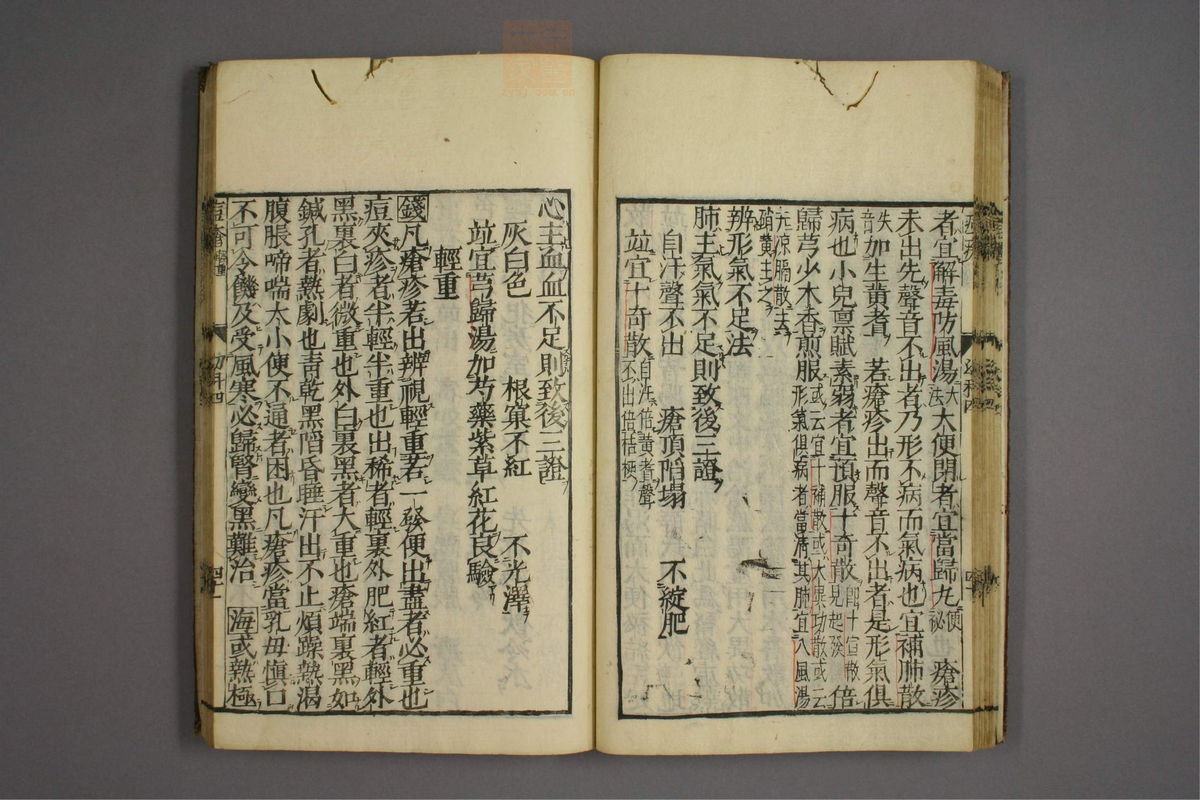 者宜解毒防風湯大法大便閉者宜當歸丸便秘也瘡疹
未出先聲音不出者乃形不病而氣病也宜補肺散
失音加生黃芪若瘡疹出而聲音不出者是形氣俱
病也小兒稟賦素弱者宜預服十奇散即十宣散見起發倍
歸芎少木香煎服或云宜十補散或大異功散或云形氣俱病者當清其肺宜八風湯
去硝黃主之
辨形氣不足法
肺主氣氣不足則致後三證
自汗聲不出 瘡頂陷塌 不綻肥
並宜十奇散自汗倍黃耆聲不出倍桔梗
心主血血不足則致後三證
灰白色 根窠不紅 不光澤
並宜芎歸湯加芍藥紫草紅花良驗
輕重
錢凡瘡疹若出辨視輕重若一發便出盡者必重也
痘夾疹者半輕半重也出稀者輕裏外肥紅者輕外
黑裏白者微重也外白裏黑者大重也瘡端裏黑如
鍼孔者熱劇也青乾黑陷昏睡汗出不止煩躁熱渴
腹脹啼喘大小便不通者困也凡瘡疹當乳母慎口
不可令饑及受風寒必歸腎變黑難治 海或熱極